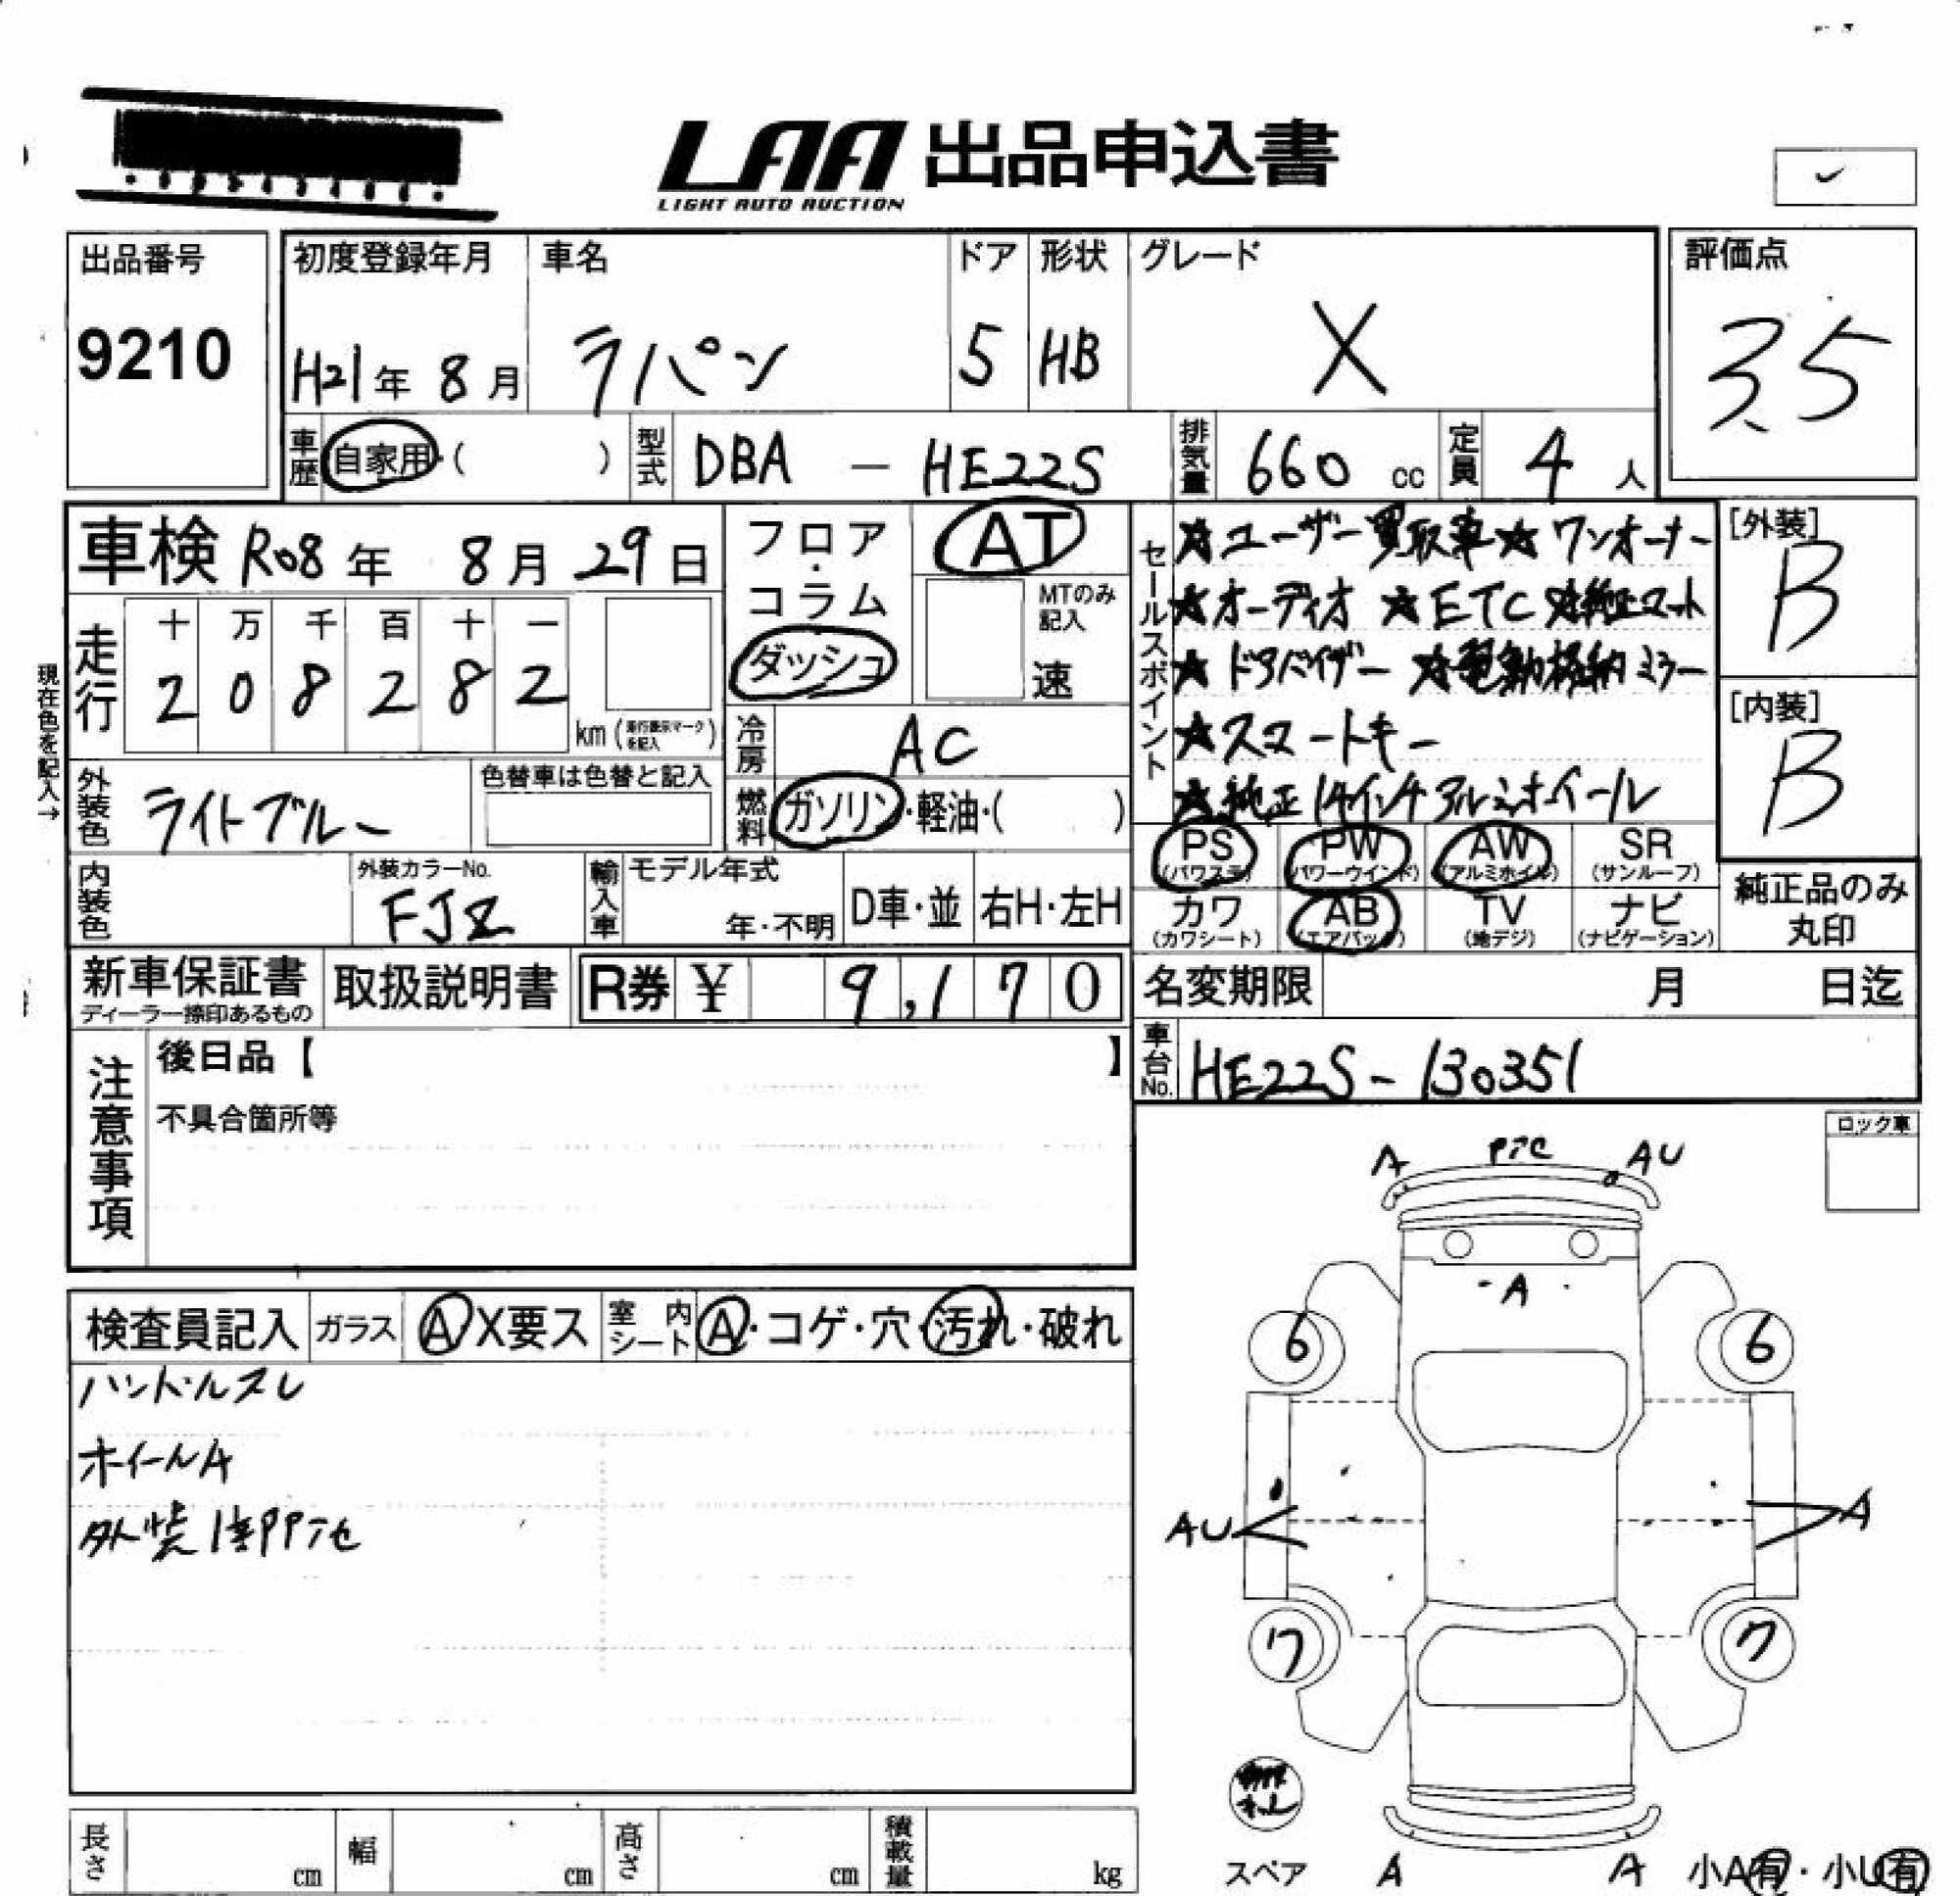 LAA 出品申込書
LIGHT AUTO AUCTION
出品番号
9210
初度登録年月
H21年 8月
車名
ラパン
ドア
5
形状
HB
グレード
X
評価点
3.5
車歴 自家用・( )
型式 DBA - HE22S
排気量 660 cc
定員 4 人
車検 R08年 8月 29日
フロア・コラム
ダッシュ
AT
MTのみ記入
速
走行
十 万 千 百 十 一
2 0 8 2 8 2
km (走行表示マークを記入)
現在色を記入→
冷房 AC
外装色 ライトブルー
色替車は色替と記入
燃料 ガソリン・軽油・( )
内装色
外装カラーNo.
FJZ
輸入車
モデル年式
年・不明
D車・並
右H・左H
セールスポイント
★ユーザー買取車★ワンオーナー
★オーディオ ★ETC ★純正マット
★ドアバイザー ★電動格納ミラー
★スマートキー
★純正14インチアルミホイール
[外装]
B
[内装]
B
PS (パワステ)
PW (パワーウインド)
AW (アルミホイル)
SR (サンルーフ)
カワ (カワシート)
AB (エアバック)
TV (地デジ)
ナビ (ナビゲーション)
純正品のみ丸印
新車保証書
ディーラー捺印あるもの
取扱説明書
R券 ¥ 9,170
名変期限 月 日迄
車台No. HE22S-130351
注意事項
後日品【 】
不具合箇所等
ロック車
検査員記入
ガラス A X要ス
室内シート A・コゲ・穴・汚れ・破れ
ハンドルスレ
ホイールA
A
AU
A
6
6
AU
A
7
7
スペア
A
A
小A有・小U有
長さ cm
幅 cm
高さ cm
積載量 kg